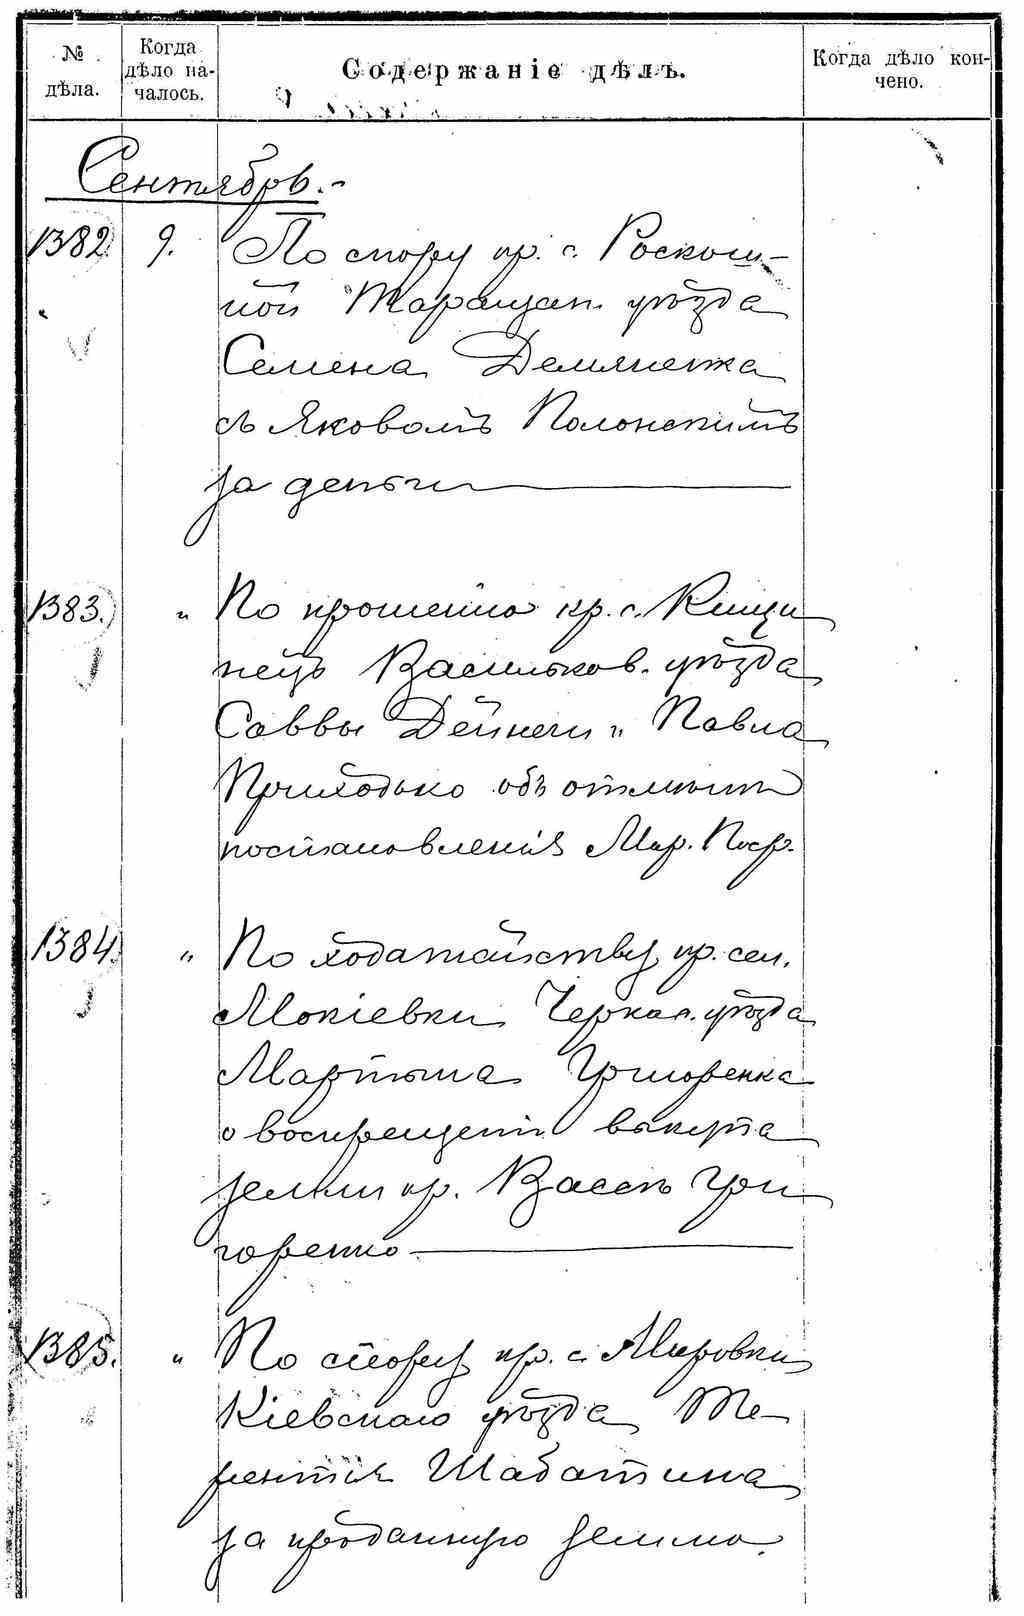 № дѣла.
Когда дѣло началось.
Содержаніе дѣлъ.
Когда дѣло кончено.
Сентябрь.
1382. 9. По спору кр. с. Роскош-
ной Таращан. уѣзда
Семена Демяненка
съ Яковомъ Полонскимъ
за деньги
1383. " По прошенію кр. с. Кищи
нецъ Васильков. уѣзда
Саввы Дейнеги и Павла
Приходько объ отмѣнѣ
постановленія Мир. Поср.
1384. " По ходатайству кр. сел.
Мокіевки Черкас. уѣзда
Мартына Григоренка
о воспрещеніи выкупа
земли кр. Васѣ Гри
горенко
1385. " По спору кр. с. Мировки
Кіевскаго уѣзда Те-
рентія Шабатина
за проданную землю.